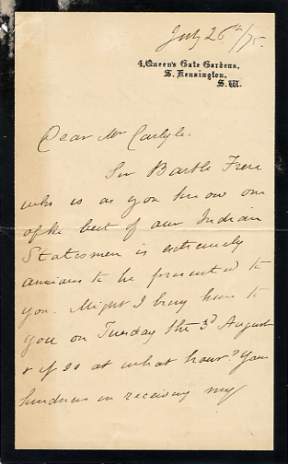 July 26th/75.
4, Queen's Gate Gardens,
S. Kensington,
S.W.
Dear Mr Carlyle.
Sir Bartle Frere
who is as you know one
of the best of our Indian
Statesmen is extremely
anxious to be presented to
you. Might I bring him to
you on Tuesday the 3d August
& if so at what hour? Your
kindness in receiving my